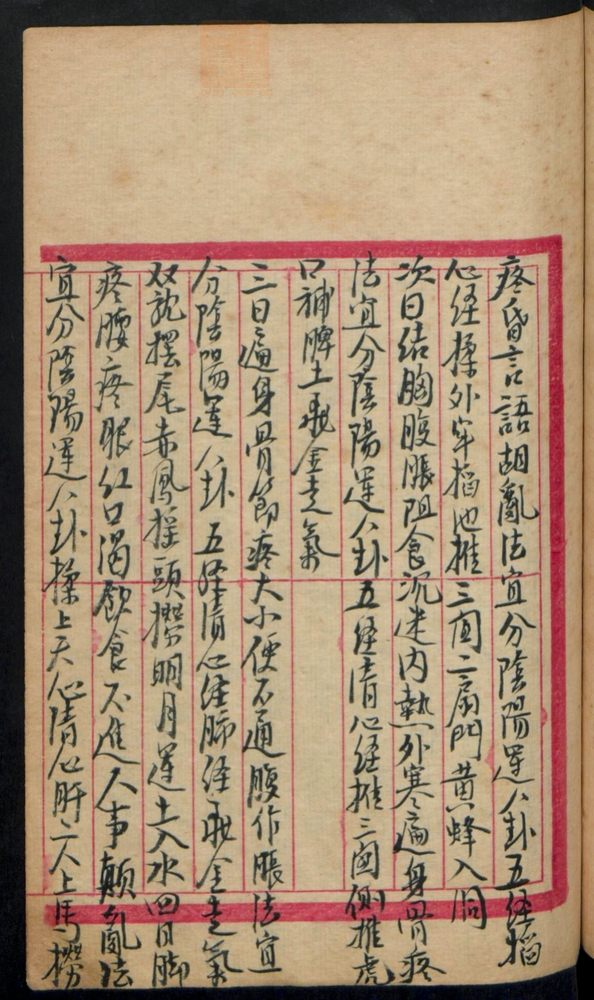 疼昏言語胡亂法宜分陰陽運八卦五経掐
心経揉外牢掐池推三関二扇門黄蜂入洞
次日结胸腹脹阻食沉迷内熱外寒遍身骨疼
法宜分陰陽運八卦五経清心経推三関側推虎
口補脾土飛金走氣
三日遍身骨節疼大小便不通腹作脹法宜
分陰陽運八卦五経清心経肺経飛金走氣
双龍摆尾赤鳳揺頭撈明月運土入水四日脚
疼腰疼眼红口渴飲食不進人事顛亂法
宜分陰陽運八卦揉上天心清心肝二人上馬撈